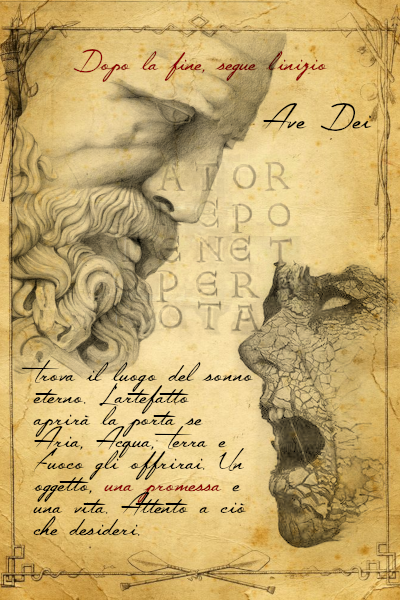 Dopo la fine, segue l'inizio
Ave Dei
ATOR
EPO
ENET
PER
OTA
trova il luogo del sonno
eterno. L'artefatto
aprirà la porta se
Aria, Acqua, Terra e
Fuoco gli offrirai. Un
oggetto, una promessa e
una vita. Attento a ciò
che desideri.